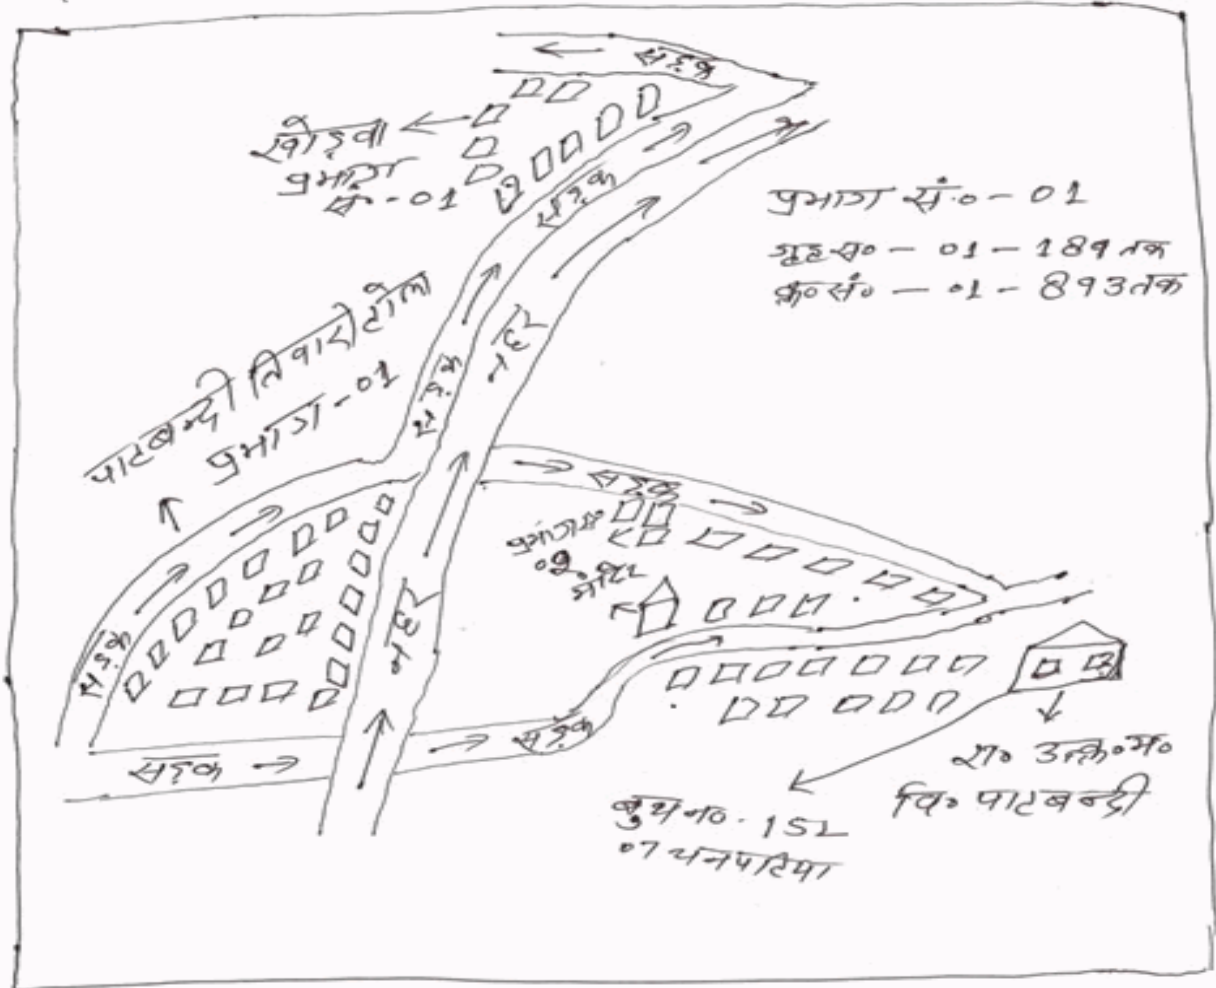 सड़क
खोड़वा
प्रभाग
सं.-01
सड़क
प्रभाग सं.०-01
गृह सं० - 01 - 189 तक
क्र० सं० - 01 - 893 तक
पाटबन्दी तिवारी टोला
प्रभाग-01
सड़क
नहर
सड़क
मंदिर
सड़क
नहर
सड़क
सड़क
रा० उत्क्र० म०
वि० पाटबन्दी
बुथ नं०. 152
07 चनपटिया